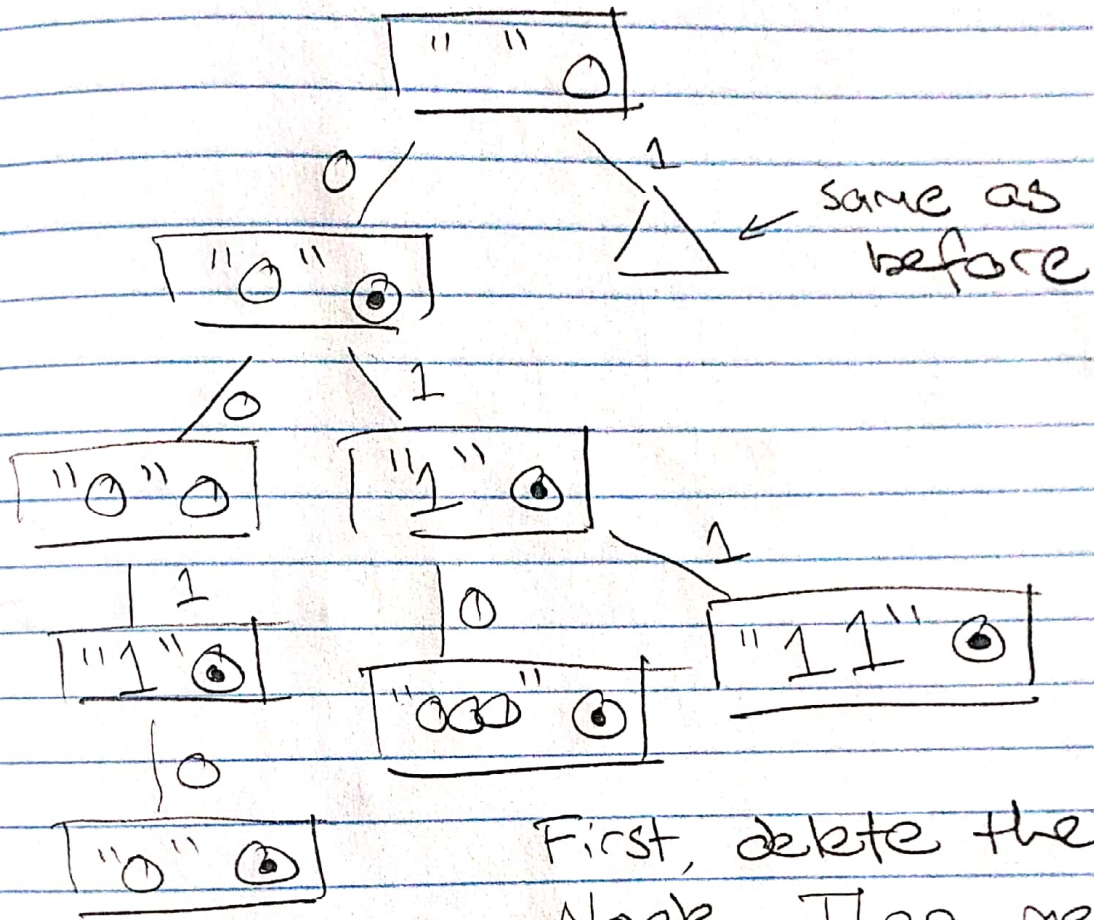 " "
0 1
same as
before
"0"
0 1
"0" "1"
1 0 1
"1" "000" "11"
0
"0"
First, delete the